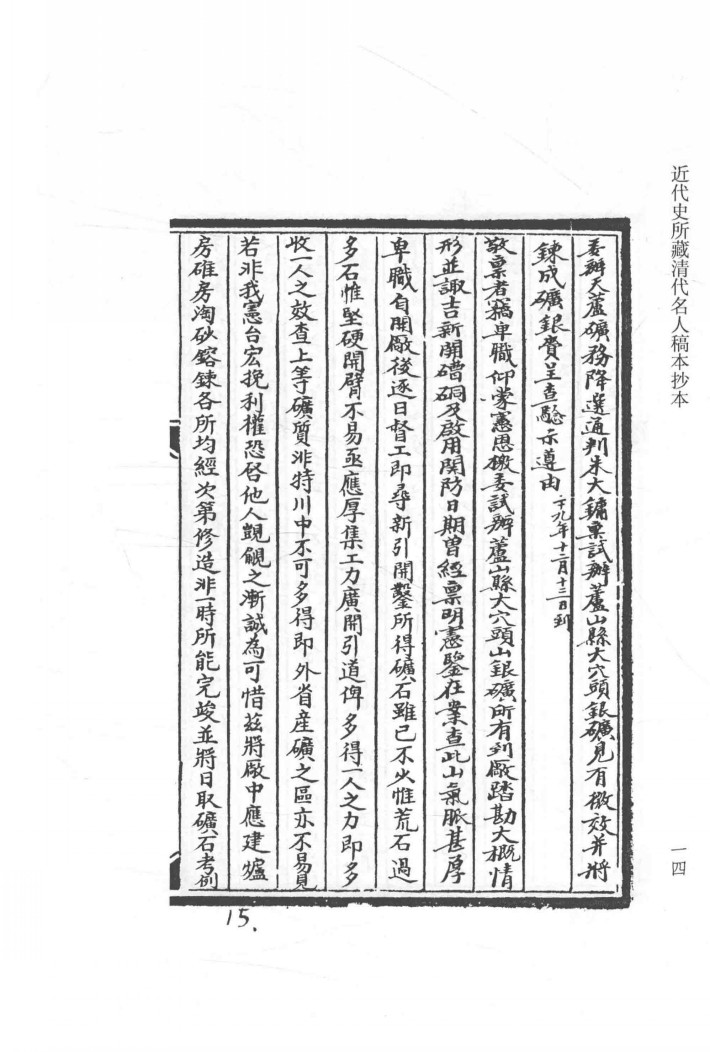 近代史所藏清代名人稿本抄本
一四
委辦天蘆礦務降選通判朱大鏞稟試辦蘆山縣大穴頭銀礦見有微效并將
鍊成礦銀賫呈查驗示遵由 十九年十二月十三日到
敬稟者竊卑職仰蒙憲恩檄委試辦蘆山縣大穴頭山銀礦所有到廠踏勘大概情
形並諏吉新開礦硐及啟用關防日期曾經稟明憲鑒在案查此山氣脈甚厚
卑職自開廠後逐日督工即尋新引開鑿所得礦石雖已不少惟荒石過
多石惟堅硬開臂不易亟應厚集工力廣開引道俾多得一人之力即多
收一人之效查上等礦質非特川中不可多得即外省産礦之區亦不易見
若非我憲台宏挽利權恐啓他人覬覦之漸誠為可惜茲將廠中應建爐
房碓房淘砂鎔鍊各所均經次第修造非一時所能完竣並將日取礦石考例
15.